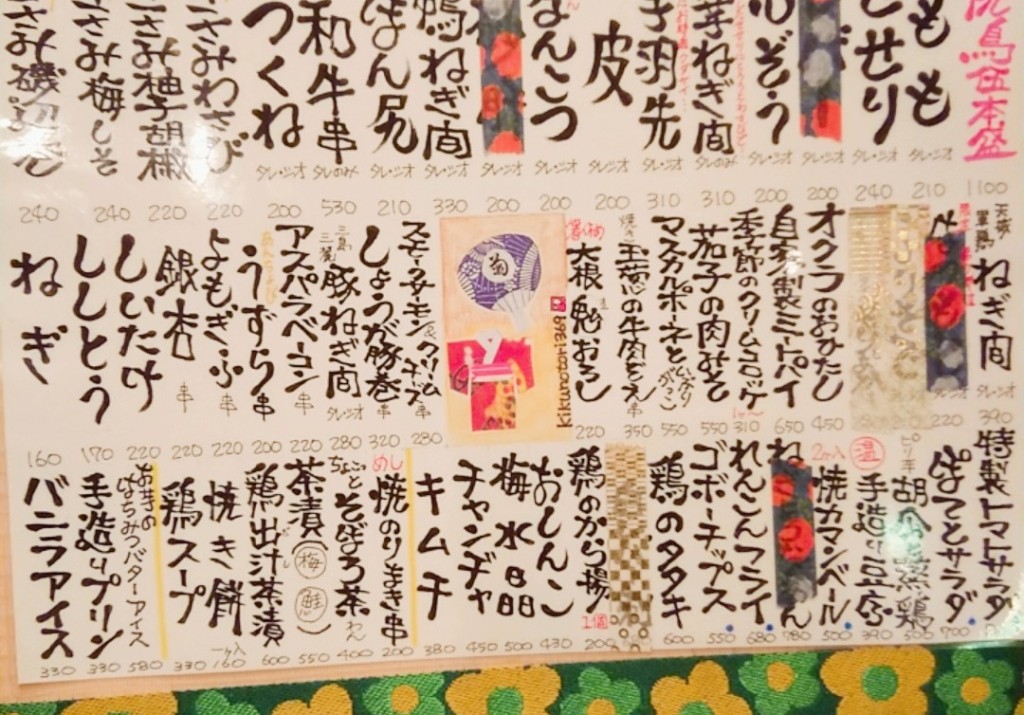 鳥伍本盛
1100
もも
タレ・シオ
210
せせり
タレ・シオ
240
200
心ぞう
タレ・シオ
200
芽ねぎ間
タレのみ
310
手羽先
タレ・シオ
310
皮
タレ・シオ
200
なんこつ
タレ・シオ
200
鴨ねぎ間
タレ・シオ
330
ぼん尻
タレ・シオ
210
和牛串
タレのみ
530
つくね
タレ・シオ
200
ささみわさび
220
ささみ柚子胡椒
220
ささみ梅しそ
240
ささみ磯辺
240
ねぎ間
タレ・シオ
390
220
オクラのおひたし
450
自家製ミートパイ
650
季節のクリームコロッケ
1ヶ〜
310
茄子の肉みそ
550
マスカルポーネと
いぶりがっこ
550
玉葱の牛肉
串
350
大根鬼おろし
220
菊
kikunotori3691
スモークサーモン
クリームチーズ
串
280
しょうが豚巻
串
320
豚ねぎ間
タレ・シオ
280
アスパラベーコン
串
220
うずら
串
200
よもぎふ
串
220
銀杏
串
220
しいたけ
220
ししとう
170
ねぎ
160
特製トマトサラダ
700
ぽてとサラダ
500
ピリ辛
胡麻蒸鶏
390
温
手造り豆腐
500
2ヶ入
焼カマンベール
780
れんこんフライ
680
ゴボーチップス
550
鶏のタタキ
600
鶏のから揚
1個
200
おしんこ
430
梅水晶
500
チャンヂャ
450
キムチ
380
めし
焼のりまき串
200
ちょこっと
そぼろ茶わん
400
茶漬(梅)(鮭)
550
鶏出汁茶漬
600
焼き餅
一ヶ入
160
鶏スープ
330
お芋の
はちみつバターアイス
580
手造りプリン
330
バニラアイス
330